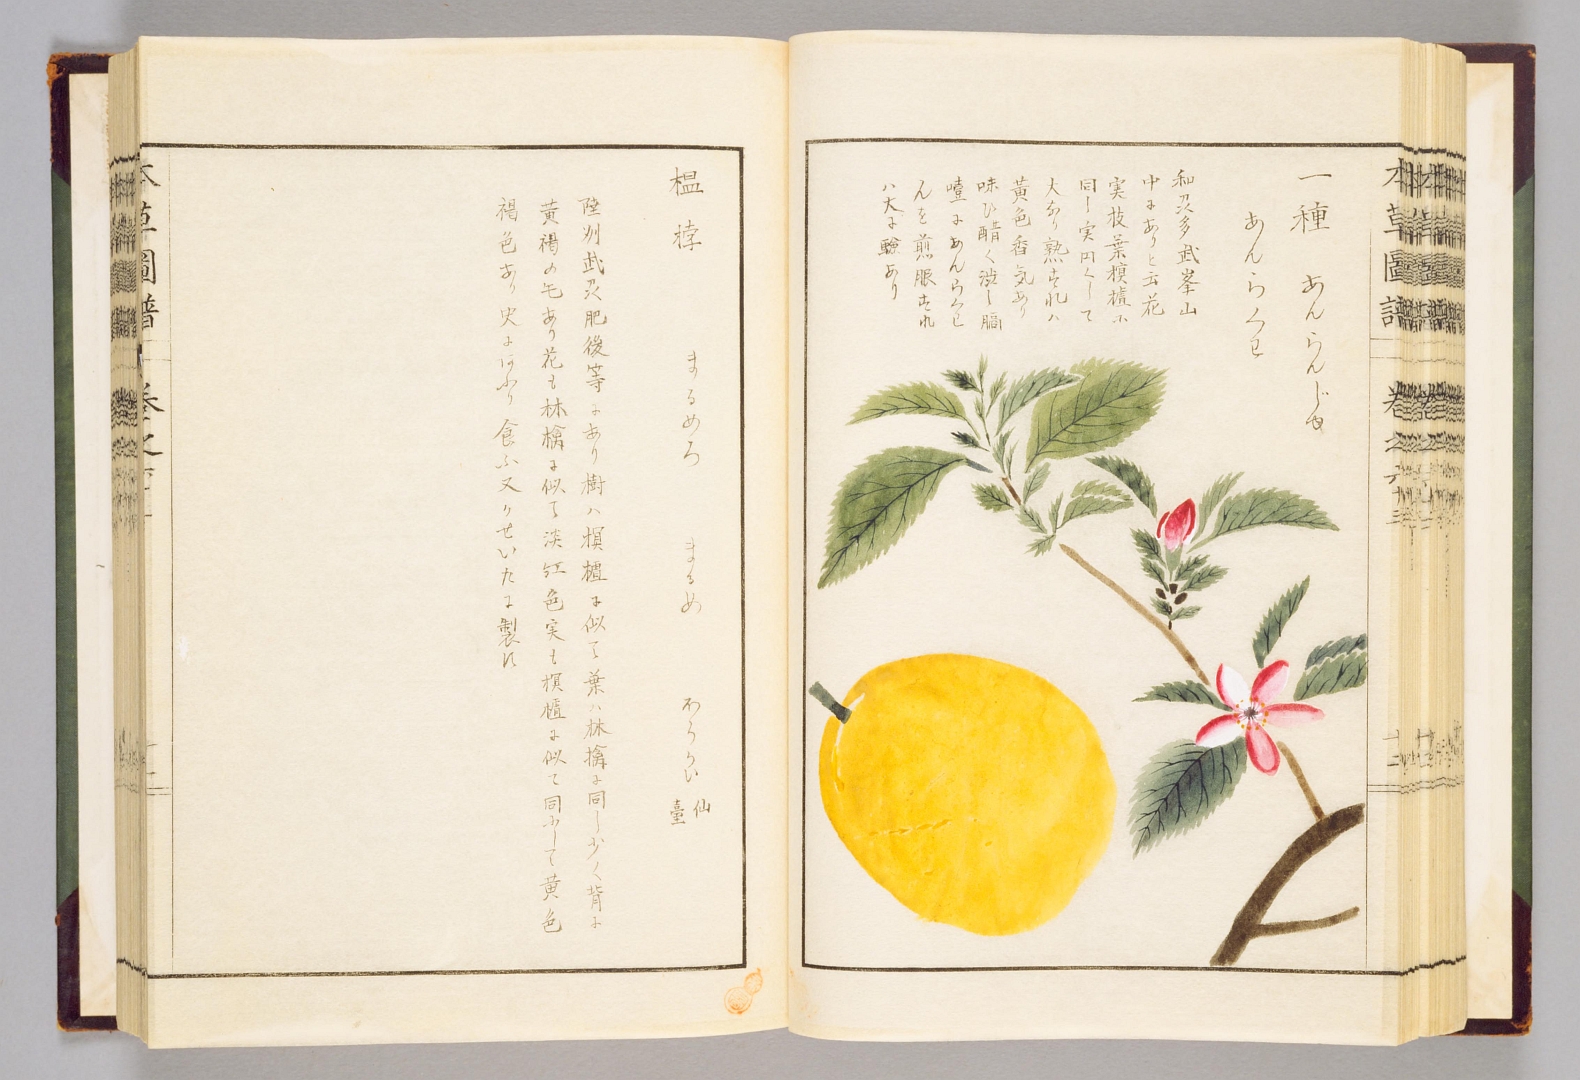 一種 あんらんじゆ
あんらくこ
和州多武峯山
中にありと云花
実枝葉榠樝ニ
同し実円くして
大なり熟すれハ
黄色香気あり
味ひ醋く渋し膈
噎にあんらくこ
んを煎服すれ
ハ大に験あり
榲桲 まるめろ まるめ 仙臺
陸州武州肥後等にあり樹ハ榠樝に似て葉ハ林檎に同し少く背に
黄褐の毛あり花も林檎に似て淡紅色実も榠樝に似て同ふして黄色
褐色あり 食ふ又かせいたに製す
本草圖譜 巻之六十三